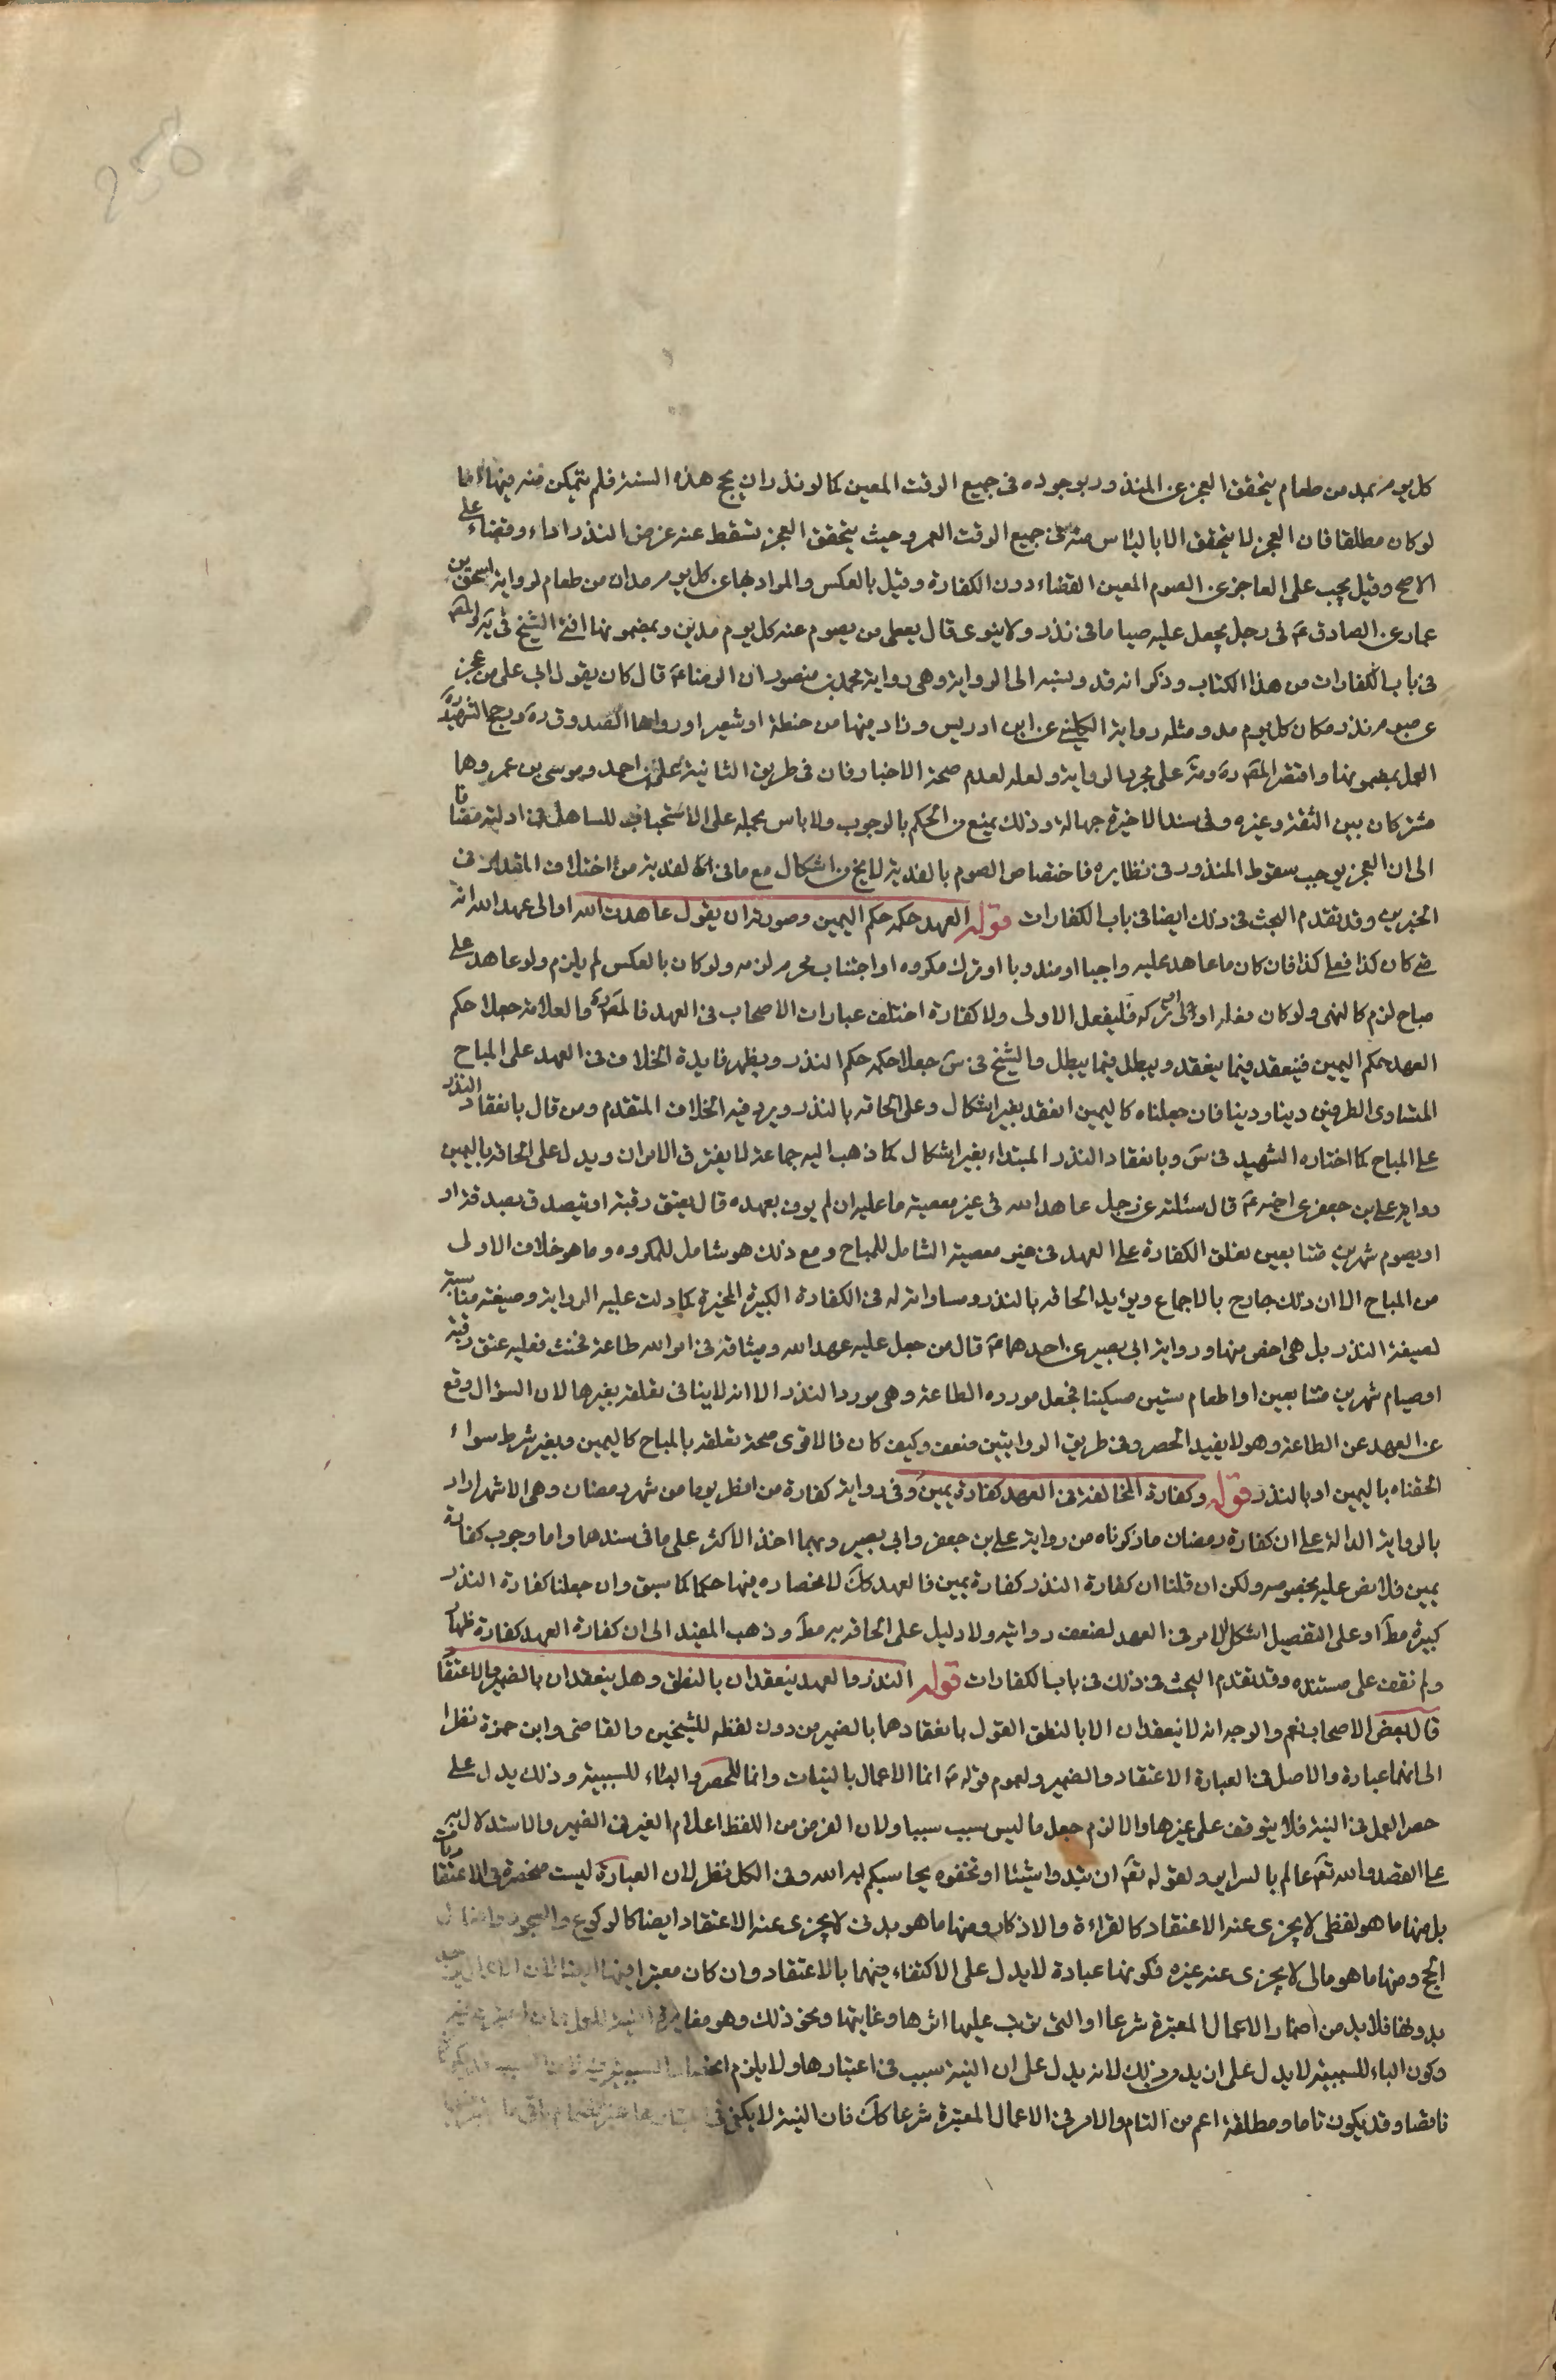 258
كل يوم بمد من طعام يتحقق العجز عن المنذور بوجوده فى جميع الوقت المعين كما لو نذر ان يحج هذه السنة فلم يتمكن منه فيها اما
لو كان مطلقا فان العجز لا يتحقق الا بالياس منه فى جميع الوقت العمر وحيث يتحقق العجز تسقط عنه فرض النذر اداء وقضاء على
الاصح وقيل يجب على العاجز عن الصوم المعين القضاء دون الكفارة وقيل بالعكس والمراد بها عن كل يوم مدان من طعام لرواية اسحق بن
عمار عن الصادق ع فى رجل يجعل عليه صياما فى نذر ولا ينوى قال يعطى من يصوم عنه كل يوم مدين وبمضمونها افتى الشيخ فى يه والمصَ
فى باب الكفارات من هذا الكتاب وذكر انه قد ونسبه الى الرواية وهى رواية محمد بن منصور ان الرضا ع قال كان يقول ابى على من عجز
عن صوم نذر مكان كل يوم مد ومثله رواية الكلينى عن ابن ادريس وزاد فيها من حنطة او شعير او رواها الصدوق ره ورجح الشهيد ره
العمل بمضمونها واقتصر المصَ ره ومَة على مجرد الرواية ولعله لعدم صحة الاخبار فان فى طريق الثانية على بن احمد وموسى بن عمر وهما
مشتركان بين الثقة وغيره وفى سند الاخيرة جهالة وذلك يمنع من الحكم بالوجوب ولا باس بحمله على الاستحباب للساهل فى ادلته مضافا
الى ان العجز يوجب سقوط المنذور فى نظايره فاختصاص الصوم بالفدية لا يخ من اشكال مع ما فى الفدية من اختلاف المقدار فى
الخبرين وقد تقدم البحث فى ذلك ايضا فى باب الكفارات قوله العهد حكمه حكم اليمين وصورته ان يقول عاهدت الله او الى عهد الله انه
متى كان كذا فعلى كذا فان كان ما عاهد عليه واجبا او مندوبا او ترك مكروه او اجتناب محرم لزمه ولو كان بالعكس لم يلزم ولو عاهد على
مباح لزم كاليمين ولو كان فعله اولى او تركه فليفعل الاولى ولا كفارة اختلف عبارات الاصحاب فى العهد فالمصَ ره والعلامة جعلا حكم
العهد حكم اليمين فينعقد فيما ينعقد ويبطل فيما يبطل والشيخ فى سَ جعلا حكمه حكم النذر ويظهر فايدة الخلاف فى العهد على المباح
المتساوى الطرفين دينا ودنيا فان جعلناه كاليمين انعقد بغير اشكال وعلى الحاقه بالنذر ويرد فيه الخلاف المتقدم ومن قال بانعقاد النذر
على المباح كما اختاره الشهيد فى سَ وبانعقاد النذر المبتداء بغير اشكال كما ذهب اليه جماعة لا يفترق الامران ويدل على الحاقه باليمين
رواية على بن جعفر عن اخيه ع قال سئلته عن رجل عاهد الله فى غير معصية ما عليه ان لم يوف بعهده قال يعتق رقبة او يتصدق بصدقة او
او يصوم شهرين متتابعين تعلق الكفارة على العهد فى غير معصية الشامل للمباح ومع ذلك هو شامل للمكروه وما هو خلاف الاولى
من المباح الا ان ذلك خارج بالاجماع ويؤيد الحاقه بالنذر ومساواته له فى الكفارة الكبيرة المخيرة كما دلت عليه الرواية وصيغته مناسبة
لصيغة النذر بل هى اخص منها ورواية ابى بصير عن احدهما ع قال من جعل عليه عهد الله وميثاقه فى امر الله طاعة فحنث فعليه عتق رقبة
او صيام شهرين متتابعين او اطعام ستين مسكينا فجعل مورده الطاعة وهى مورد النذر الا انه لا ينافى تعلقه بغيرها لان السؤال وقع
عن العهد عن الطاعة وهو لا يفيد الحصر وفى طريق الروايتين ضعف وكيف كان فالاقوى صحة تعلقه بالمباح كاليمين وبغير شرط سواء
الحقناه باليمين او بالنذر قوله وكفارة المخالفة فى العهد كفارة يمين وفى رواية كفارة من افطر يوما من شهر رمضان وهى الاشهر اراد
بالرواية الدالة على ان كفارة رمضان ما ذكرناه من رواية على بن جعفر وابى بصير وبهما اخذ الاكثر على ما فى سندهما واما وجوب كفارة
يمين فلا نص عليه بخصوصه ولكن ان قلنا ان كفارة النذر كفارة يمين فالعهد كك لانحصاره فيها حكما كما سبق وان جعلنا كفارة النذر
كبيرة مطَ او على التفصيل اشكل الامر فى العهد لضعف روايته ولا دليل على الحاقه به مطَ وذهب المفيد الى ان كفارة العهد كفارة ظهار
ولم نقف على مستنده وقد تقدم البحث فى ذلك فى باب الكفارات قوله النذر والعهد ينعقدان بالنطق وهل ينعقدان بالضمير والاعتقاد
قال بعض الاصحاب نعم والوجه انه لا ينعقدان الا بالنطق القول بانعقادهما بالضمير من دون لفظه للشيخين والقاضى وابن حمزة نظرا
الى انهما عبادة والاصل فى العبادة الاعتقاد والضمير ولعموم قوله ص انما الاعمال بالنيات وانما للحصر والباء للسببية وذلك يدل على
حصر العمل فى النية فلا يتوقف على غيرها والا لزم جعل ما ليس بسبب سببا ولان الغرض من اللفظ اعلام الغير فى الضمير والاستدلال به
على القصد والله تعَ عالم بالسراير ولقوله تعَ ان تبدوا شيئا او تخفوه يحاسبكم به الله وفى الكل نظر لان العبادة ليست منحصرة فى الاعتقادات
بل منها ما هو لفظى لا يجزى عنه الاعتقاد كالقراءة والاذكار ومنها ما هو بدنى لا يجزى عنه الاعتقاد ايضا كالركوع والسجود وافعال
الحج ومنها ما هو مالى لا يجزى عنه غيره فكونها عبادة لا يدل على الاكتفاء فيهما بالاعتقاد وان كان معتبرا فيها
بدونها فلا بد من اضمار الاعمال المعتبرة شرعا او التى ترتب عليها اثرها وغايتها ونحو ذلك وهو مغاير
وكون الباء للسببية لا يدل على ان يد وذلك لانه يدل على ان النية سبب فى اعتبارها ولا يلزم انحصار السببية
ناقصا وقد يكون تاما ومطلقه اعم من التام والامر فى الاعمال المعتبرة شرعا كك فان النية لا يكفى فى